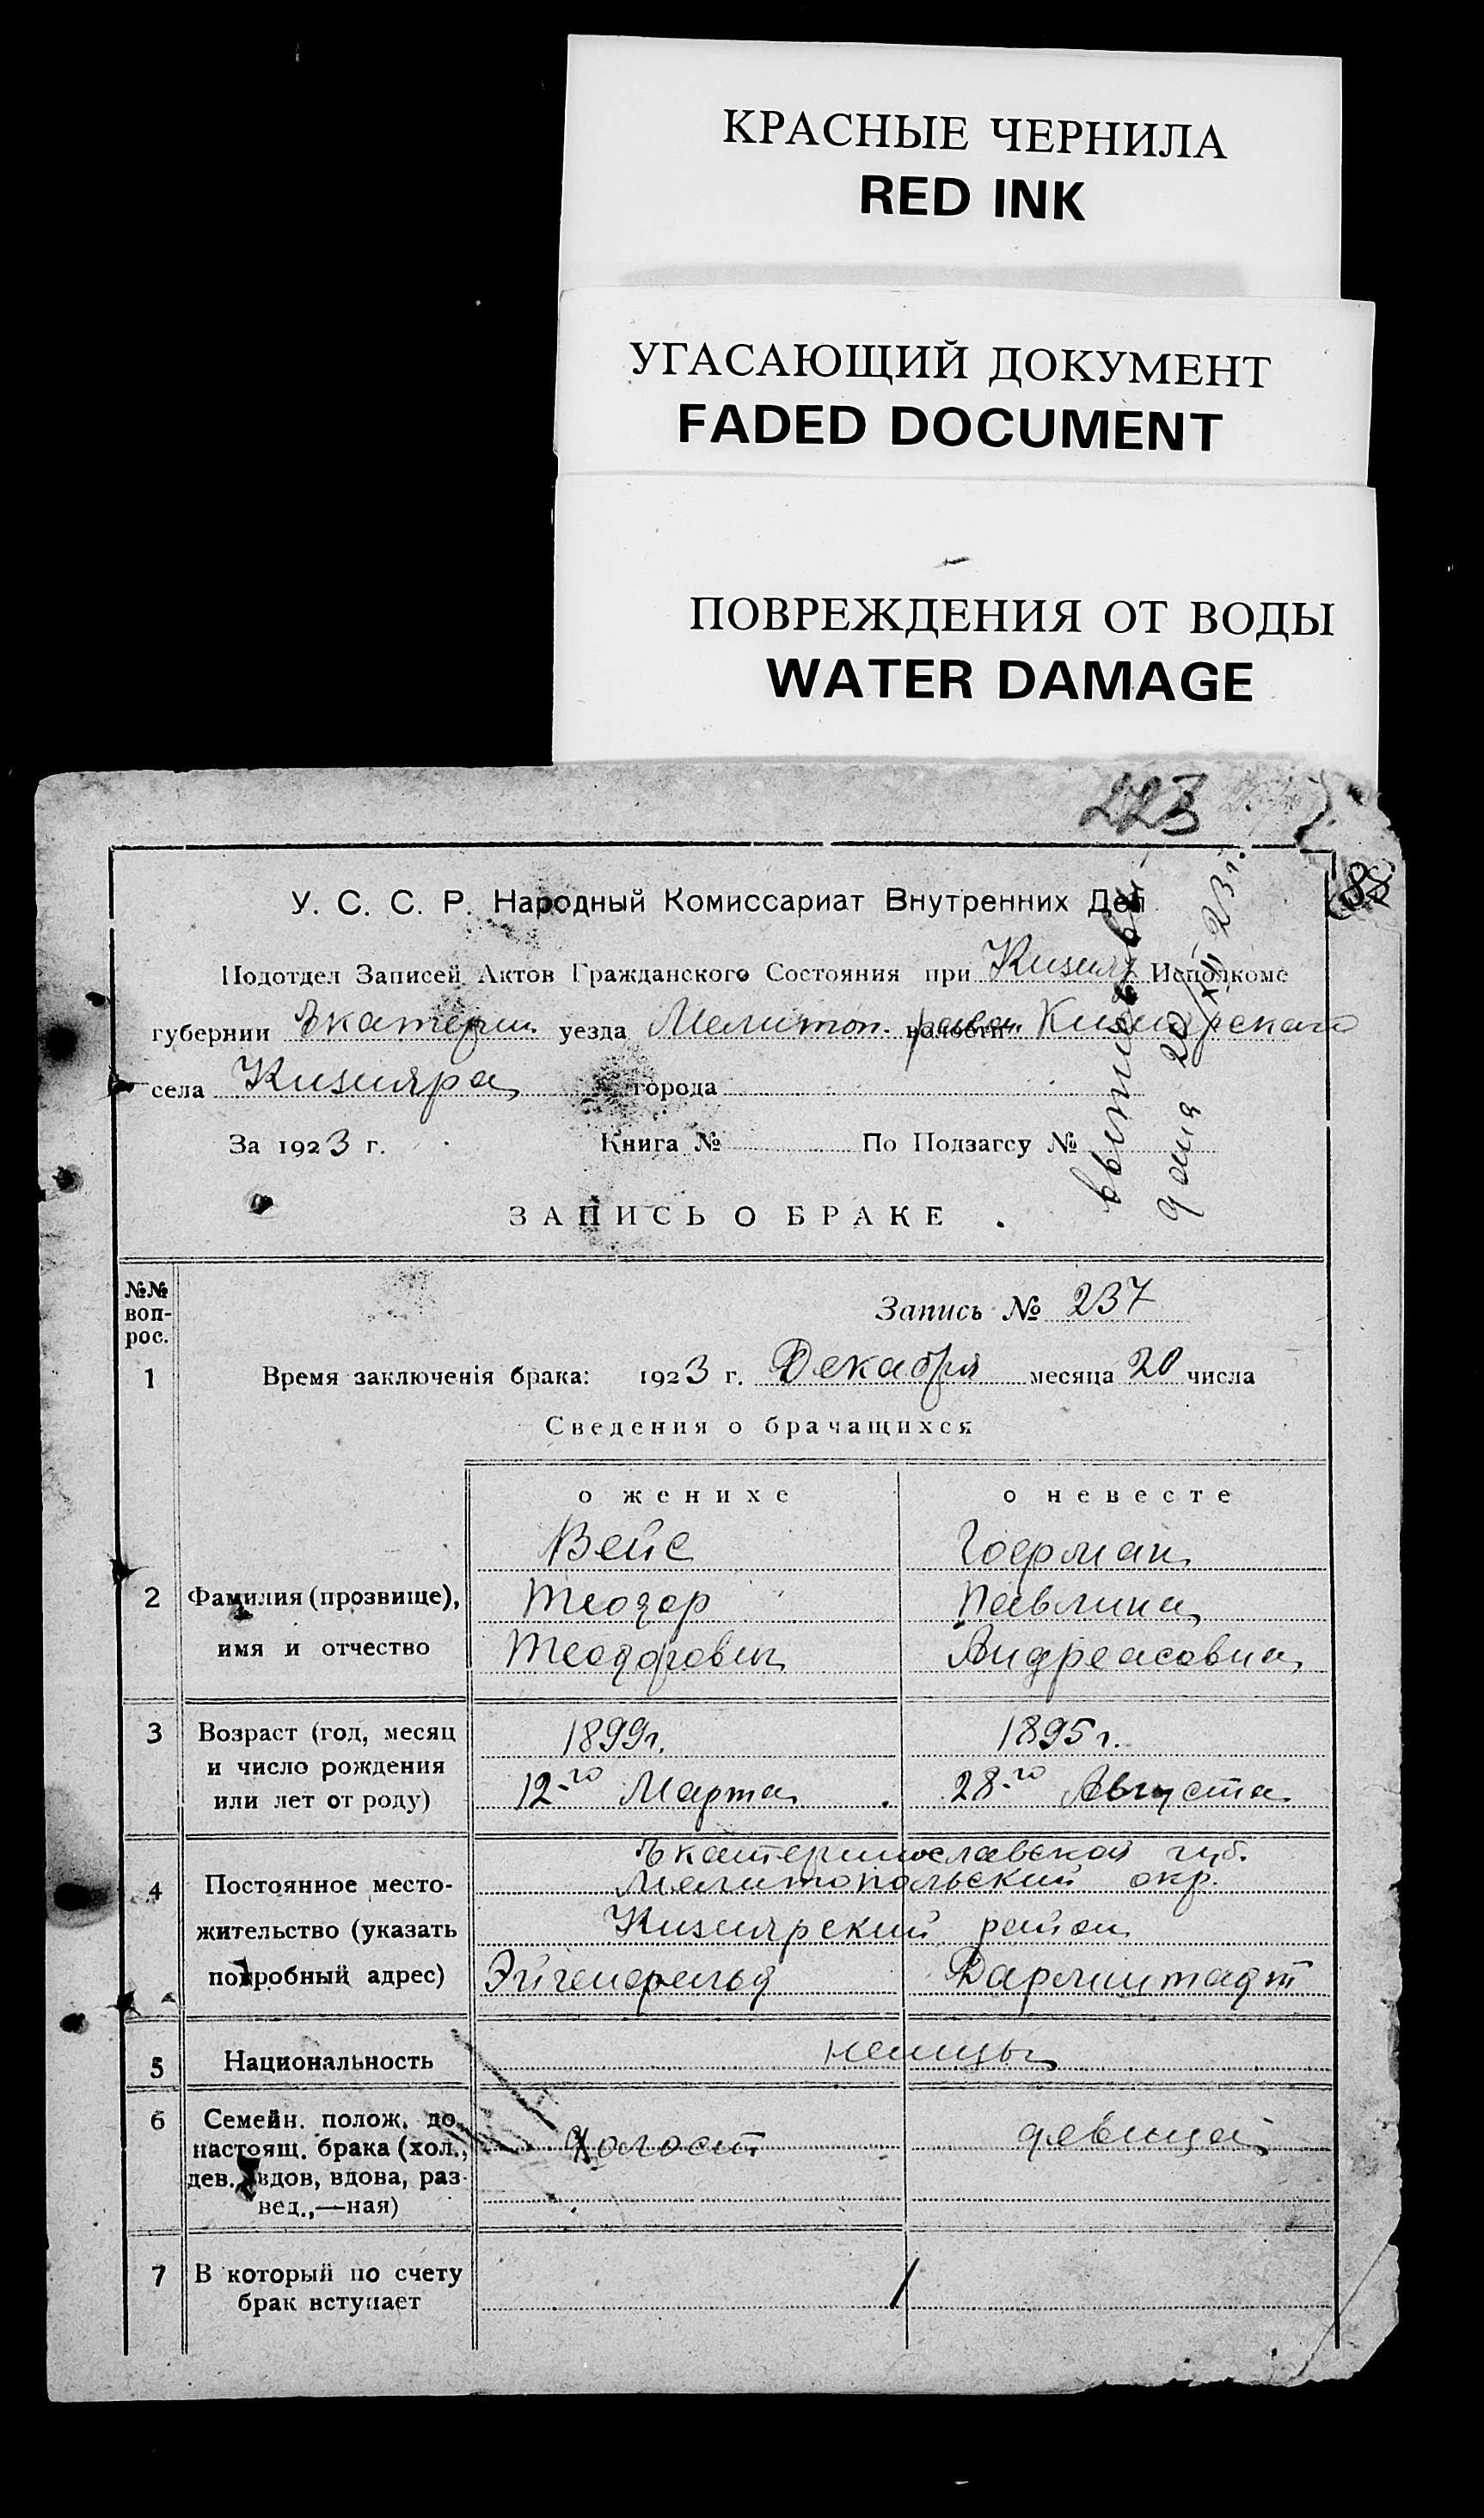 КРАСНЫЕ ЧЕРНИЛА
RED INK
УГАСАЮЩИЙ ДОКУМЕНТ
FADED DOCUMENT
ПОВРЕЖДЕНИЯ ОТ ВОДЫ
WATER DAMAGE
223
88
У. С. С. Р. Народный Комиссариат Внутренних Дел
Подотдел Записей Актов Гражданского Состояния при Кизияр Исполкоме
губернии Екатерин. уезда Мелитоп. волости район Кизиярского
села Кизияра города
За 1923 г. Книга № По Подзагсу №
дана 20/XII 23 г.
ЗАПИСЬ О БРАКЕ
№№ вопрос.
Запись № 237
1 Время заключенія брака: 1923 г. Декабря месяца 20 числа
Сведения о брачащихся
о женихе о невесте
Вейс Гофман
2 Фамилия (прозвище), Теодор Павлина
имя и отчество Теодорович Андреасовна
3 Возраст (год, месяц 1899 г. 1895 г.
и число рождения
или лет от роду) 12-го Марта 28-го Августа
Екатеринославской губ.
4 Постоянное место- Мелитопольский окр.
жительство (указать Кизиярский район
подробный адрес) Эйгенфельд Дармштадт
5 Национальность немцы
6 Семейн. полож. до
настоящ. брака (хол., холост девица
дев., вдов, вдова, раз-
вед.,—ная)
7 В который по счету
брак вступает 1